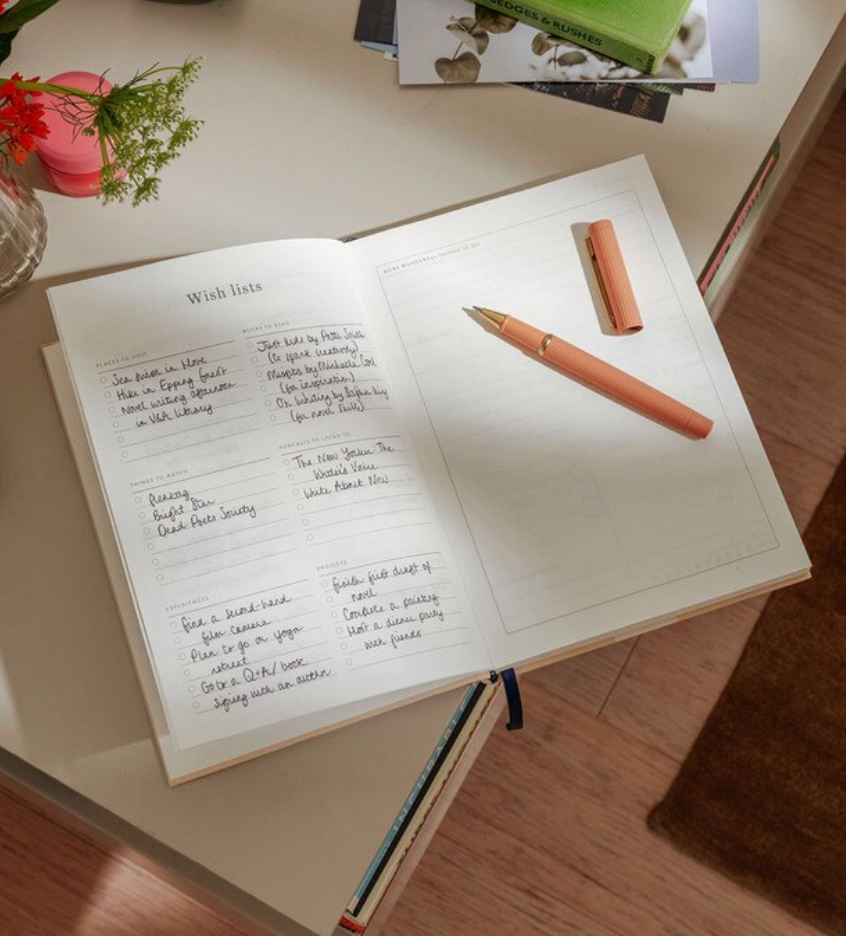 SEDGES & RUSHES
Wish lists
PLACES TO VISIT
Sea swim in Hove
Hike in Epping forest
Novel writing afternoon
in V&A library
BOOKS TO READ
Just kids by Patti Smith
(to spark creativity)
by Michelle
(for inspiration)
On Writing by
(for novel skills)
THINGS TO WATCH
fleabag
Bright Star
Dead Poets Society
PODCASTS TO LISTEN TO
The New Yorker: The
Writer's Voice
Write About Now
EXPERIENCES
find a second-hand
film camera
Plan to go on yoga
retreat
Go to a Q+A/book
signing with an author
PROJECTS
finish first draft of
novel
Complete a painting
Host a dinner party
with friends
MORE WONDERFUL THINGS TO DO